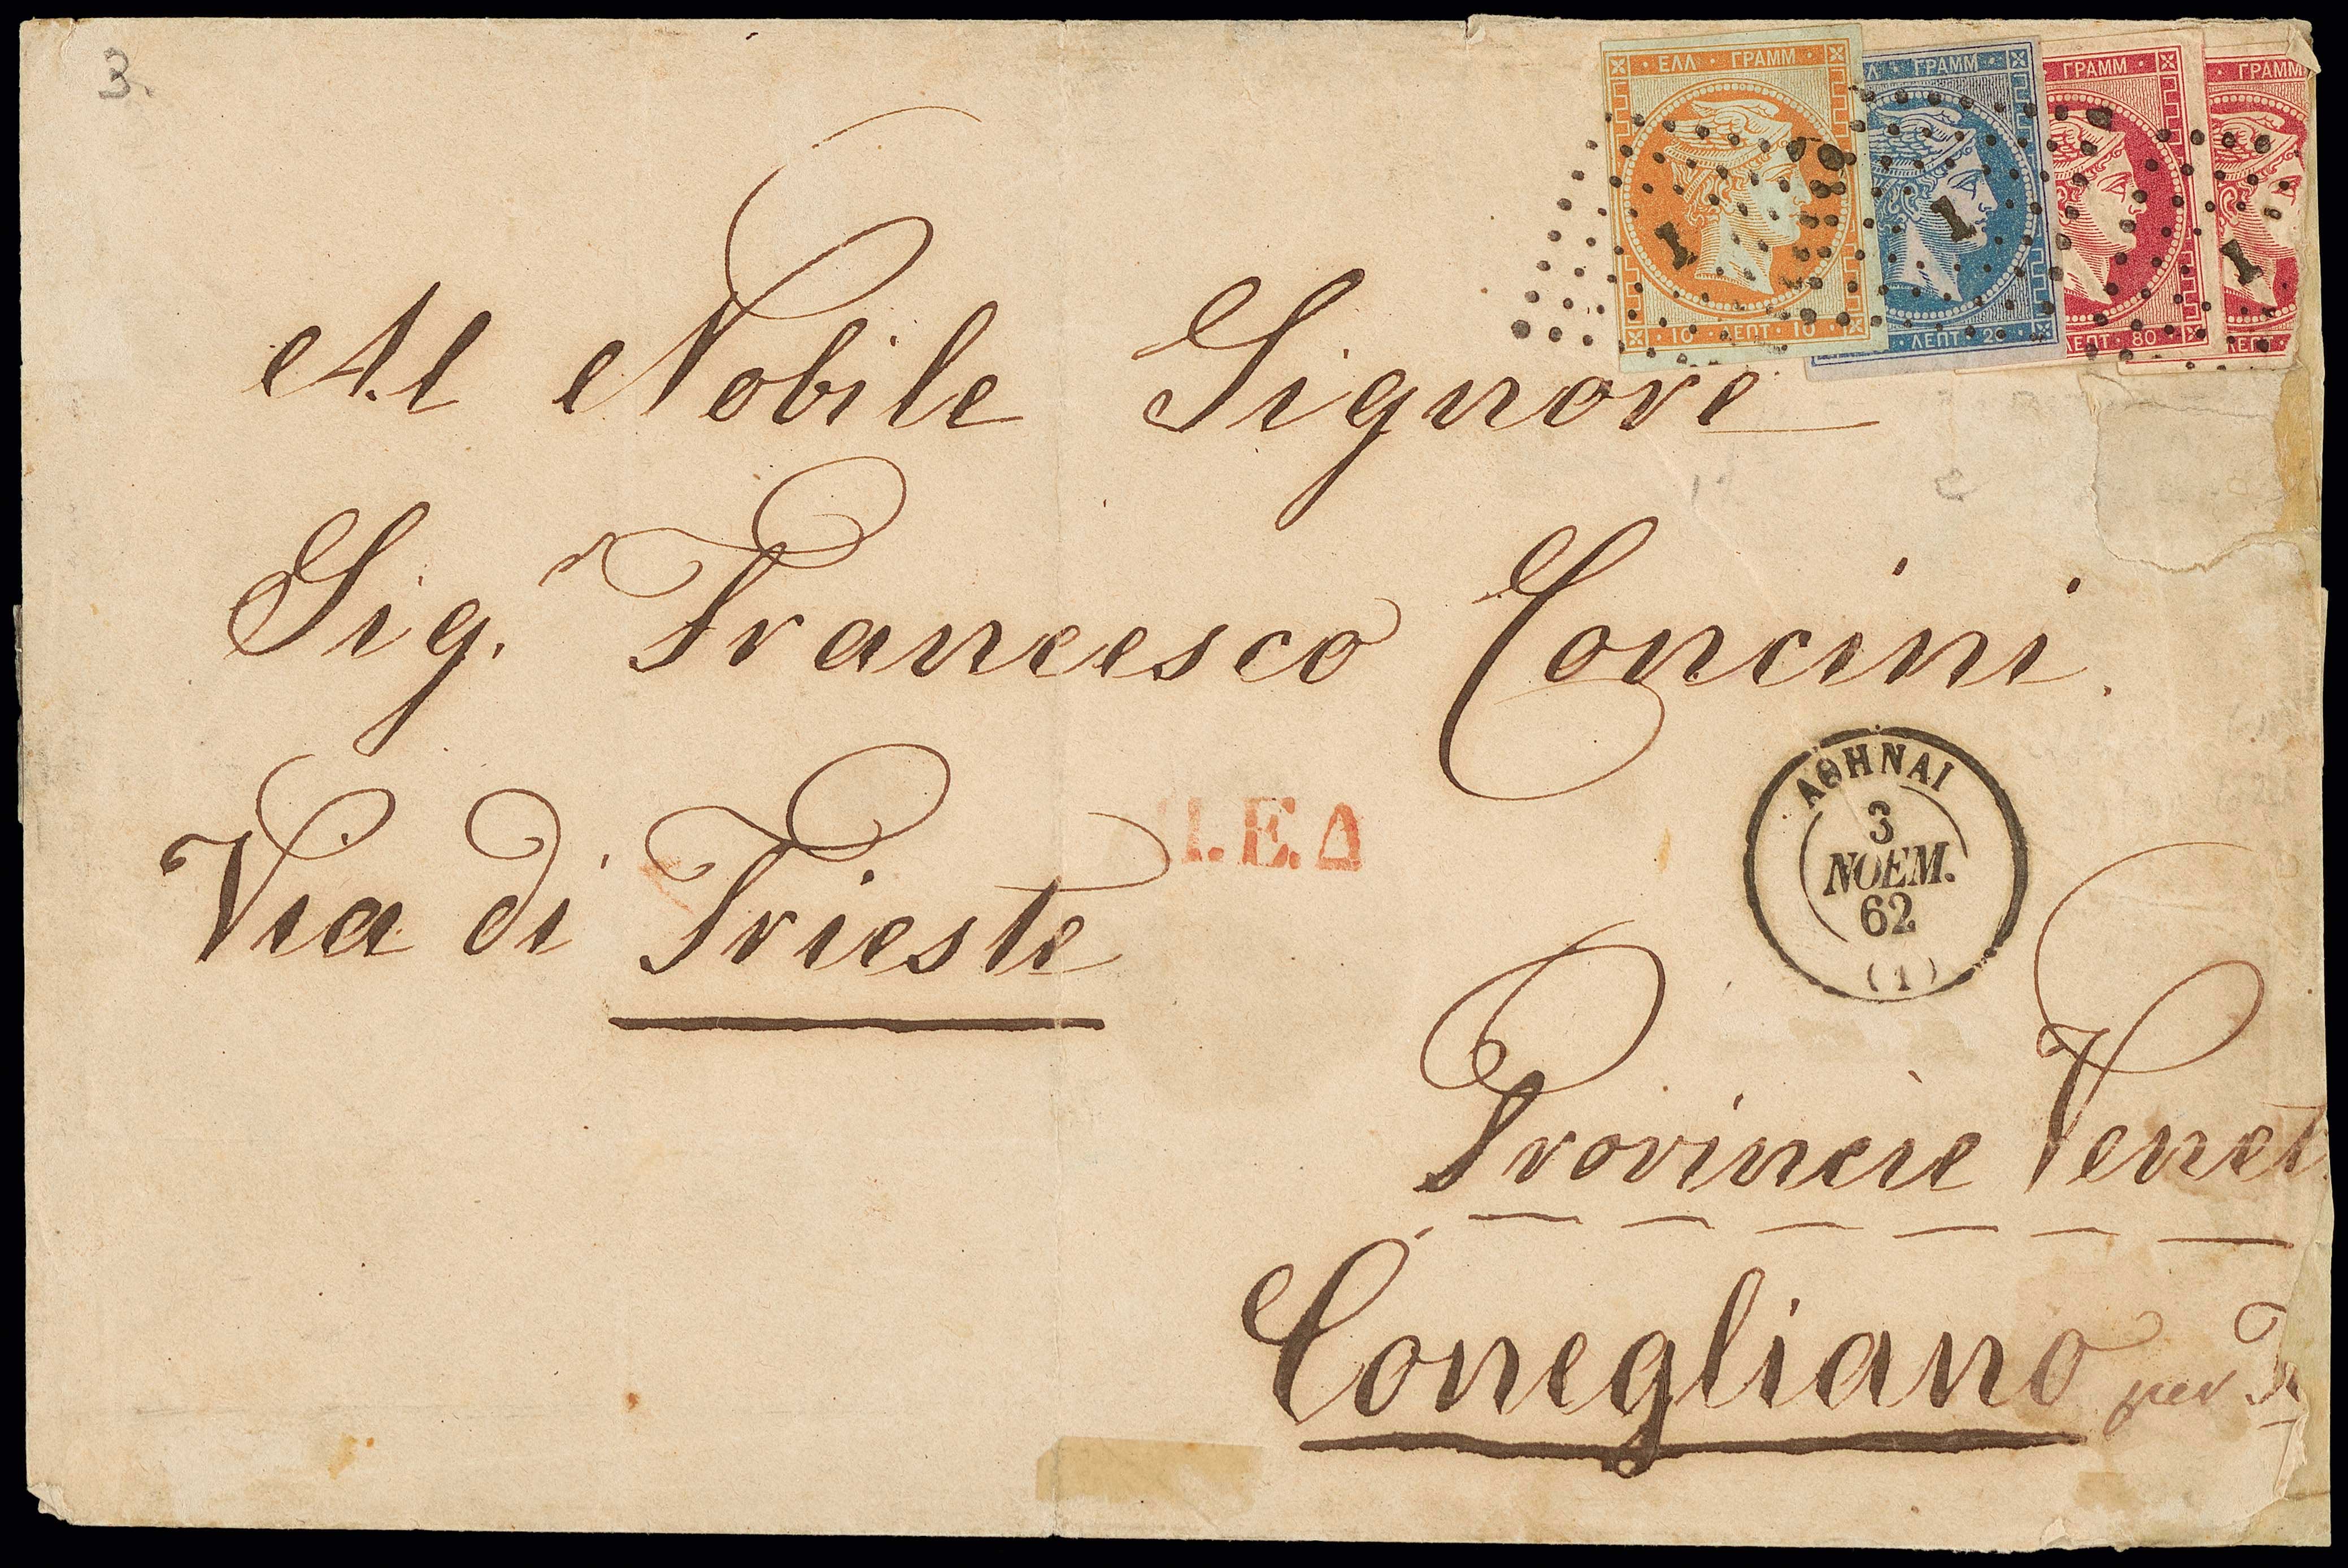 3.
ΕΛΛ · ΓΡΑΜΜ
1
10 ΛΕΠΤ · 10
ΓΡΑΜΜ
1
ΛΕΠΤ · 20
ΓΡΑΜΜ
ΛΕΠΤ · 80
ΓΡΑΜΜ
1
Al Nobile Signore
Sig.r Francesco Concini.
Via di Trieste
Π.Ε.Δ
ΑΘΗΝΑΙ
3
ΝΟΕΜ.
62
(1)
Provincie Venet
Conegliano per